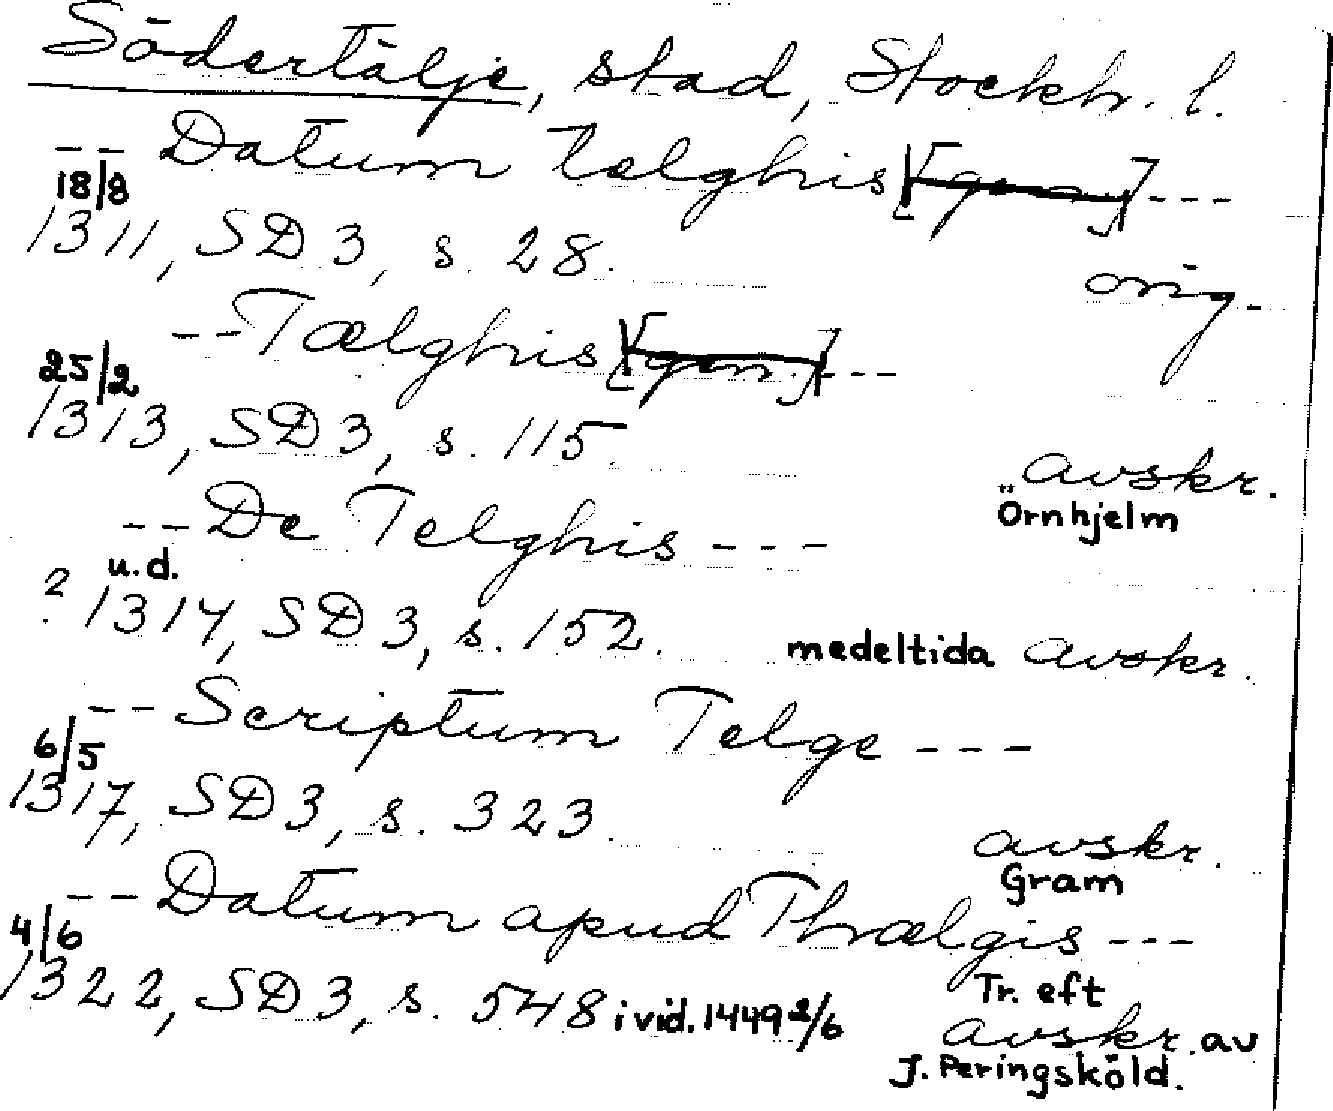 Södertälje, stad, Stockh. l.
-- Datum tælghis [gen.] ---
18/8
1311, SD 3, s. 28. orig.
-- Tælghis [gen.] ---
25/2
1313, SD 3, s. 115. avskr.
Örnhjelm
-- De Telghis ---
u.d.
? 1314, SD 3, s. 152. medeltida avskr.
-- Scriptum Telge ---
6/5
1317, SD 3, s. 323. avskr.
Gram
-- Datum apud Thrælgis ---
4/6
1322, SD 3, s. 548 i vid. 1449 2/6 Tr. eft
avskr. av
J. Peringsköld.